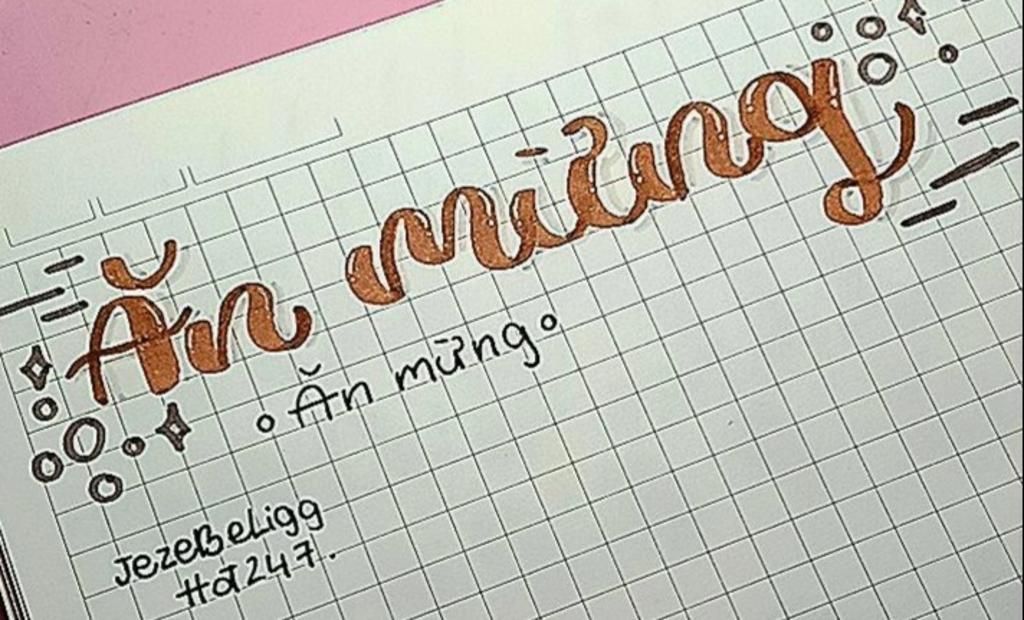 Ăn mừng
Ăn mừng
JezeBeLigg
Hđ247.